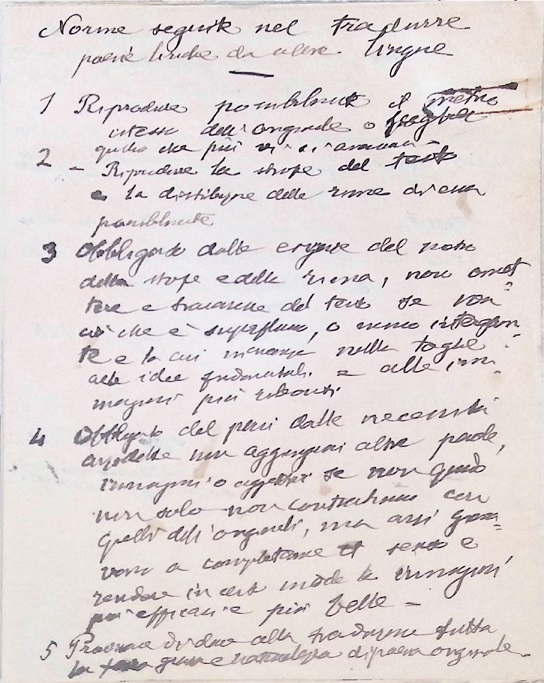 Norme seguite nel tradurre
poesie liriche da altre lingue
1 Riprodurre possibilmente il metro
istesso dell'originale o
quello che più vi si avvicina -
2 - Riprodurre la strofe del testo
e la distribuzione delle rime di essa
possibilmente
3 Obbligato dalle esigenze del metro
della strofe e della rima, non omet-
tere e tralasciare del testo se non
ciò che è superfluo, o meno interessan-
te e la cui mancanza nulla toglie
alle idee fondamentali e alle im-
magini più
4 Obbligato del pari dalle necessità
anzidette non aggiungere altre parole,
immagini o aggettivi se non quando
non solo non contrastino con
quelli dell'originale, ma anzi gio-
vano a completarne il senso e
rendere in certo modo le immagini
più efficaci e più belle -
5 Procurare di dare alla traduzione tutta
la naturalezza di poesia originale.